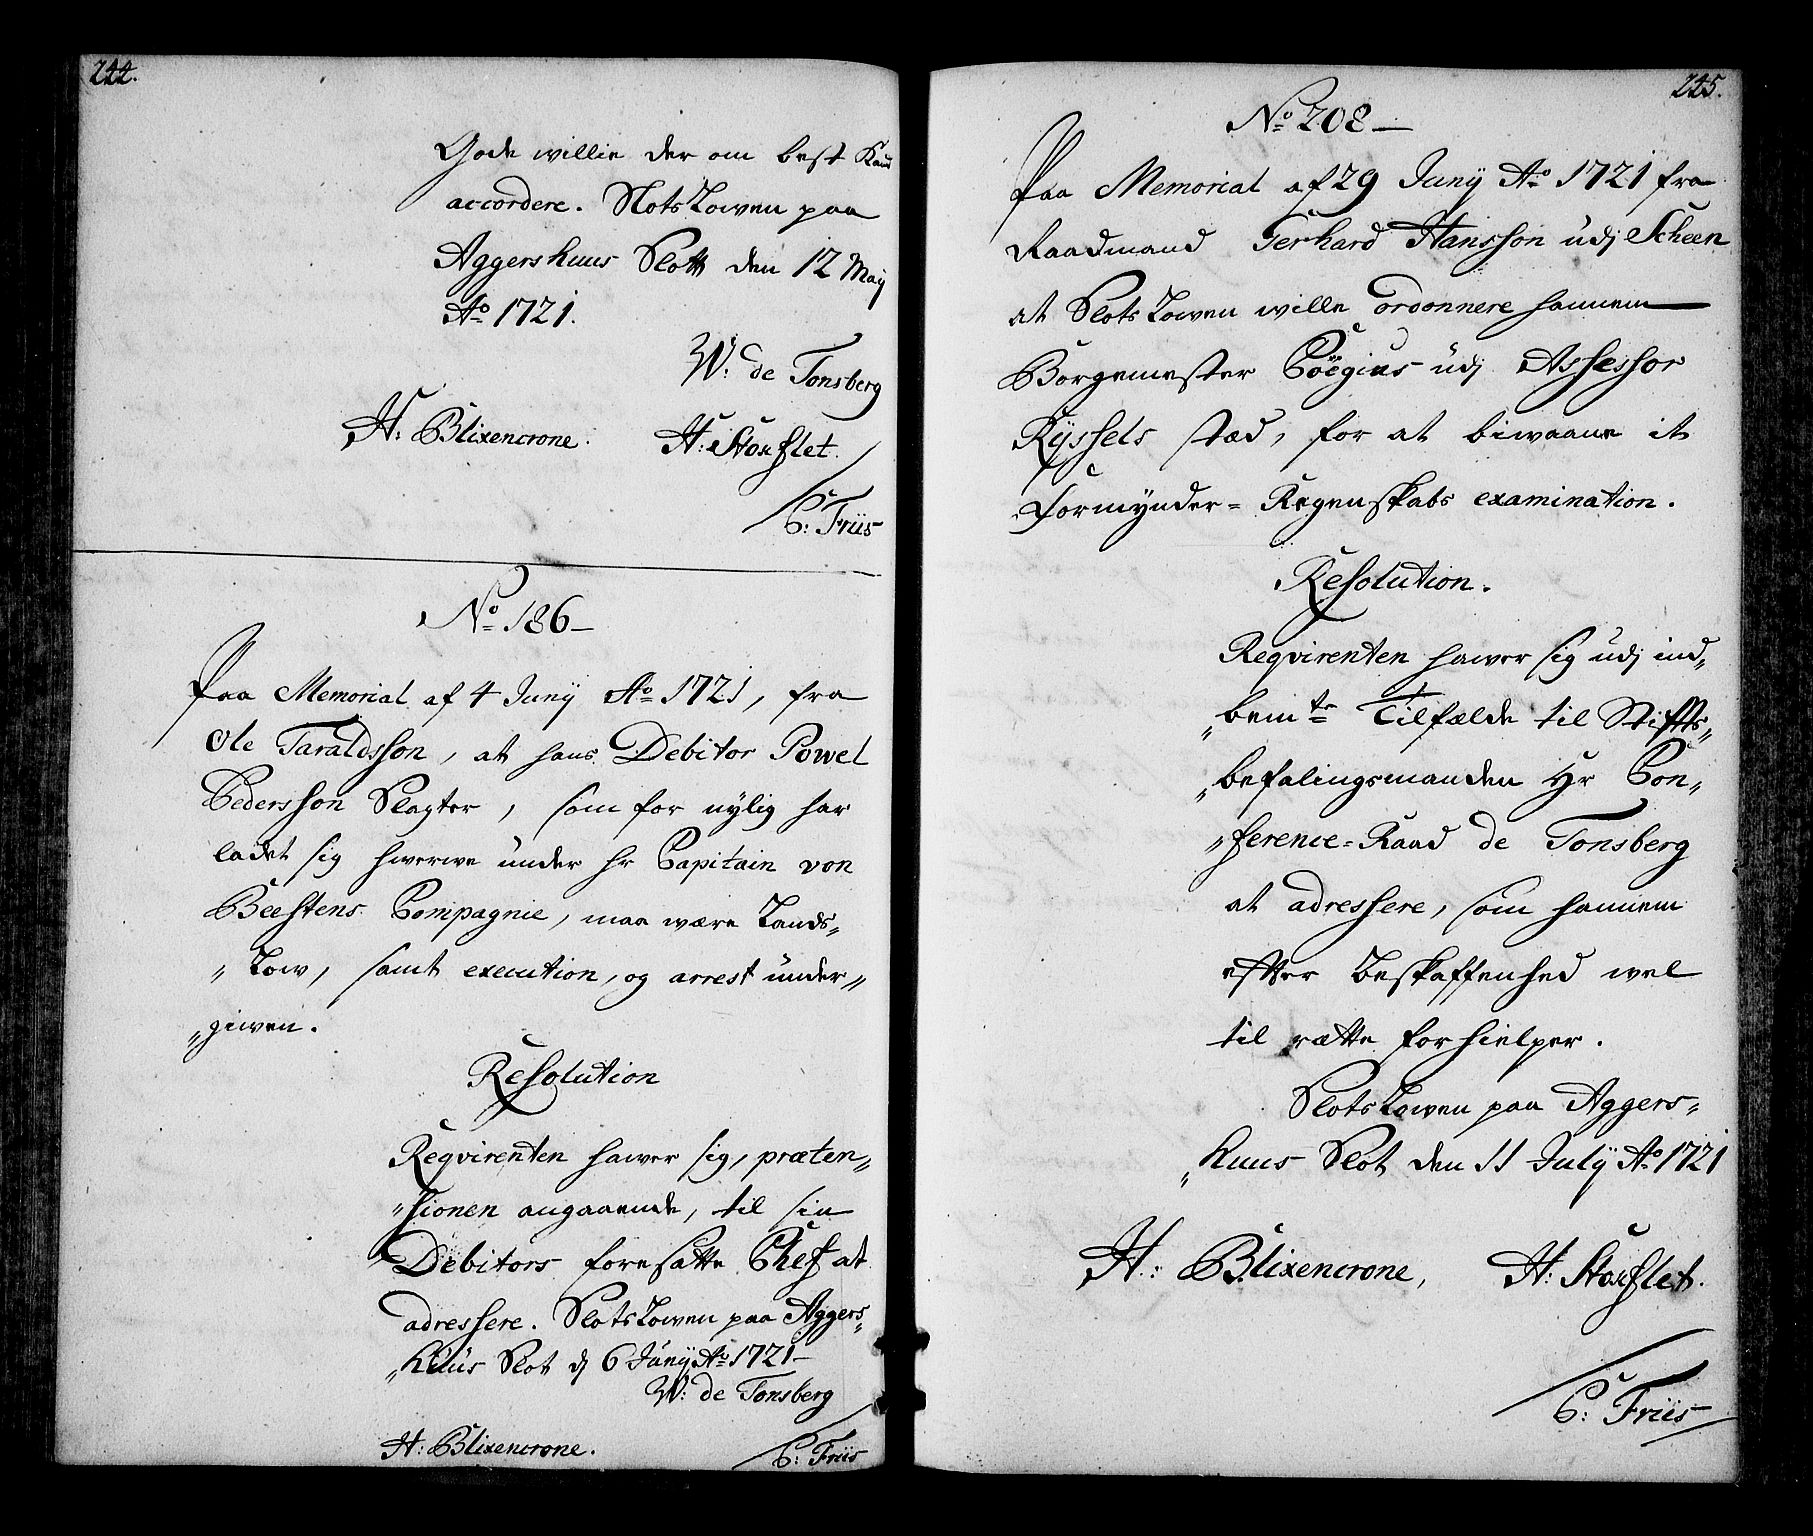 244.
Gode willie der om best Kand
accordere. SlotsLowen paa
Aggershuus Slott den 12 Maij
Ao 1721.
W: de Tonsberg
H: Blixencrone. H: Stockflet.
C: Friis
No 186
Paa Memorial af 4 Junij Ao 1721, fra
Ole Taraldsson, at hans Debitor Powel
Pedersson Slagter, som for nylig har
ladet sig hwerwe under hr Capitain von
Beestens Compagnie, maa wære Lands„
„Low, samt execution, og arrest under„
„giwen.
Resolution
Reqvirenten hawer sig, præten„
„sionen angaaende, til sin
Debitors foresatte Chef at
adressere. SlotsLowen paa Aggers„
„huus Slot d 6 Junij Ao 1721
W: de Tonsberg
H: Blixencrone. C: Friis
245.
No 208
Paa Memorial af 29 Junij Ao 1721 fra
Raadmand Gerhard Hansson udj Scheen
at SlotsLowen wille ordonnere hannem
Borgemester Coëgius udj Assessor
Ryssels stæd, for at biwaane it
Formynder= Regenskabs examination.
Resolution.
Reqvirenten hawer sig udj ind„
„bemte Tilfælde til Stiffts„
„befalingsmanden Hr Con„
„ference=Raad de Tonsberg
at adressere, som hannem
efter Beskaffenhed wel
til rætte forhielper.
SlotsLowen paa Aggers„
„huus Slot den 11 Julij Ao 1721
H: Blixencrone, H: Stockflet.
C: Friis